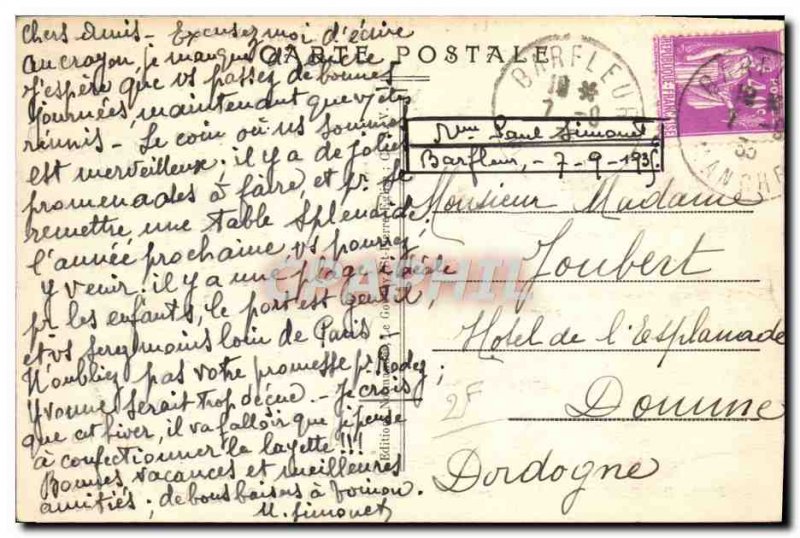 CARTE POSTALE
Chers Amis - Excusez moi d'écrire
au crayon, je manque d'encre
J'espère que vs passez de bonnes
journées, maintenant que vs êtes
réunis - Le coin où ns sommes
est merveilleux, il y a de jolies
promenades à faire, et pr se
remettre une table splendide.
l'année prochaine vs pourrez
y venir, il y a une plage idéale
pr les enfants, le port est gentil,
et vs serez moins loin de Paris -
N'oubliez pas votre promesse pr Rodez,
Yvonne serait trop déçue. - Je crois
que cet hiver, il va falloir que je pense
à confectionner la layette !!!
Bonnes vacances et meilleures
amitiés, de bons baisers à
M. Simonet
BARFLEUR
MANCHE
Paul Simonet
Barfleur, - 7-9-1935.
Monsieur Madame
Joubert
Hotel de l'Esplanade
Domme
Dordogne
2F
CPAPHIL